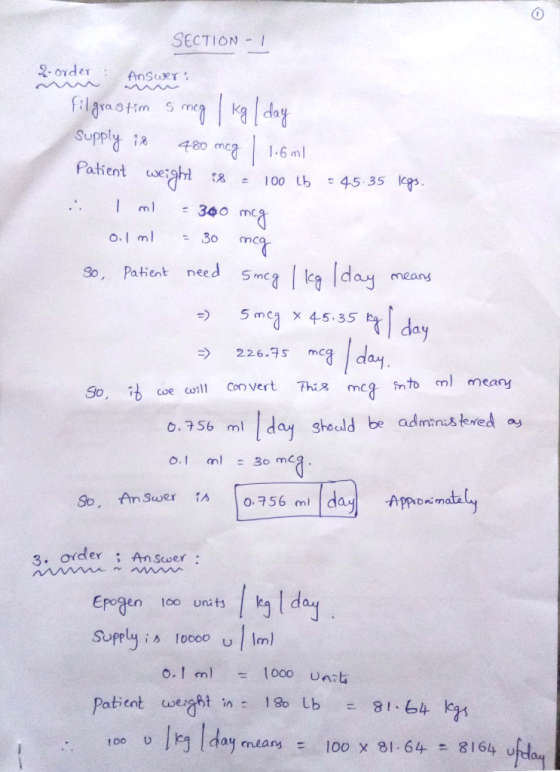 1
SECTION - 1
2. order : Answer :
Filgrastim 5 mcg | kg | day
Supply is 480 mcg | 1.6 ml
Patient weight is = 100 lb = 45.35 kgs.
∴ 1 ml = 300 mcg
0.1 ml = 30 mcg
So, Patient need 5 mcg | kg | day means
=> 5 mcg × 45.35 kg | day
=> 226.75 mcg | day.
So, if we will convert This mcg into ml means
0.756 ml | day should be administered as
0.1 ml = 30 mcg.
So, Answer is 0.756 ml | day Approximately
3. order : Answer :
Epogen 100 units | kg | day.
Supply is 10000 u | 1ml
0.1 ml = 1000 units
Patient weight in = 180 lb = 81.64 kgs
∴ 100 u | kg | day means = 100 × 81.64 = 8164 u/day